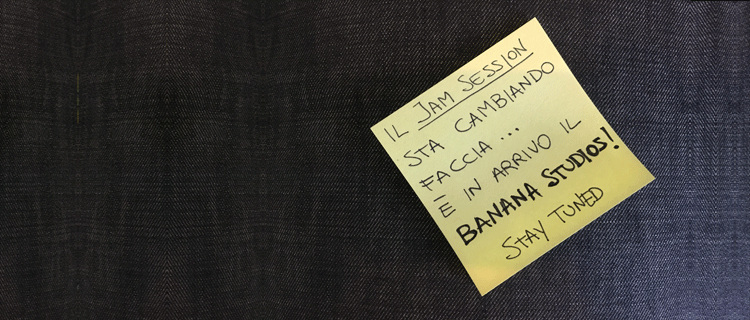 IL JAM SESSION
STA CAMBIANDO
FACCIA...
È IN ARRIVO IL
BANANA STUDIOS!
STAY TUNED